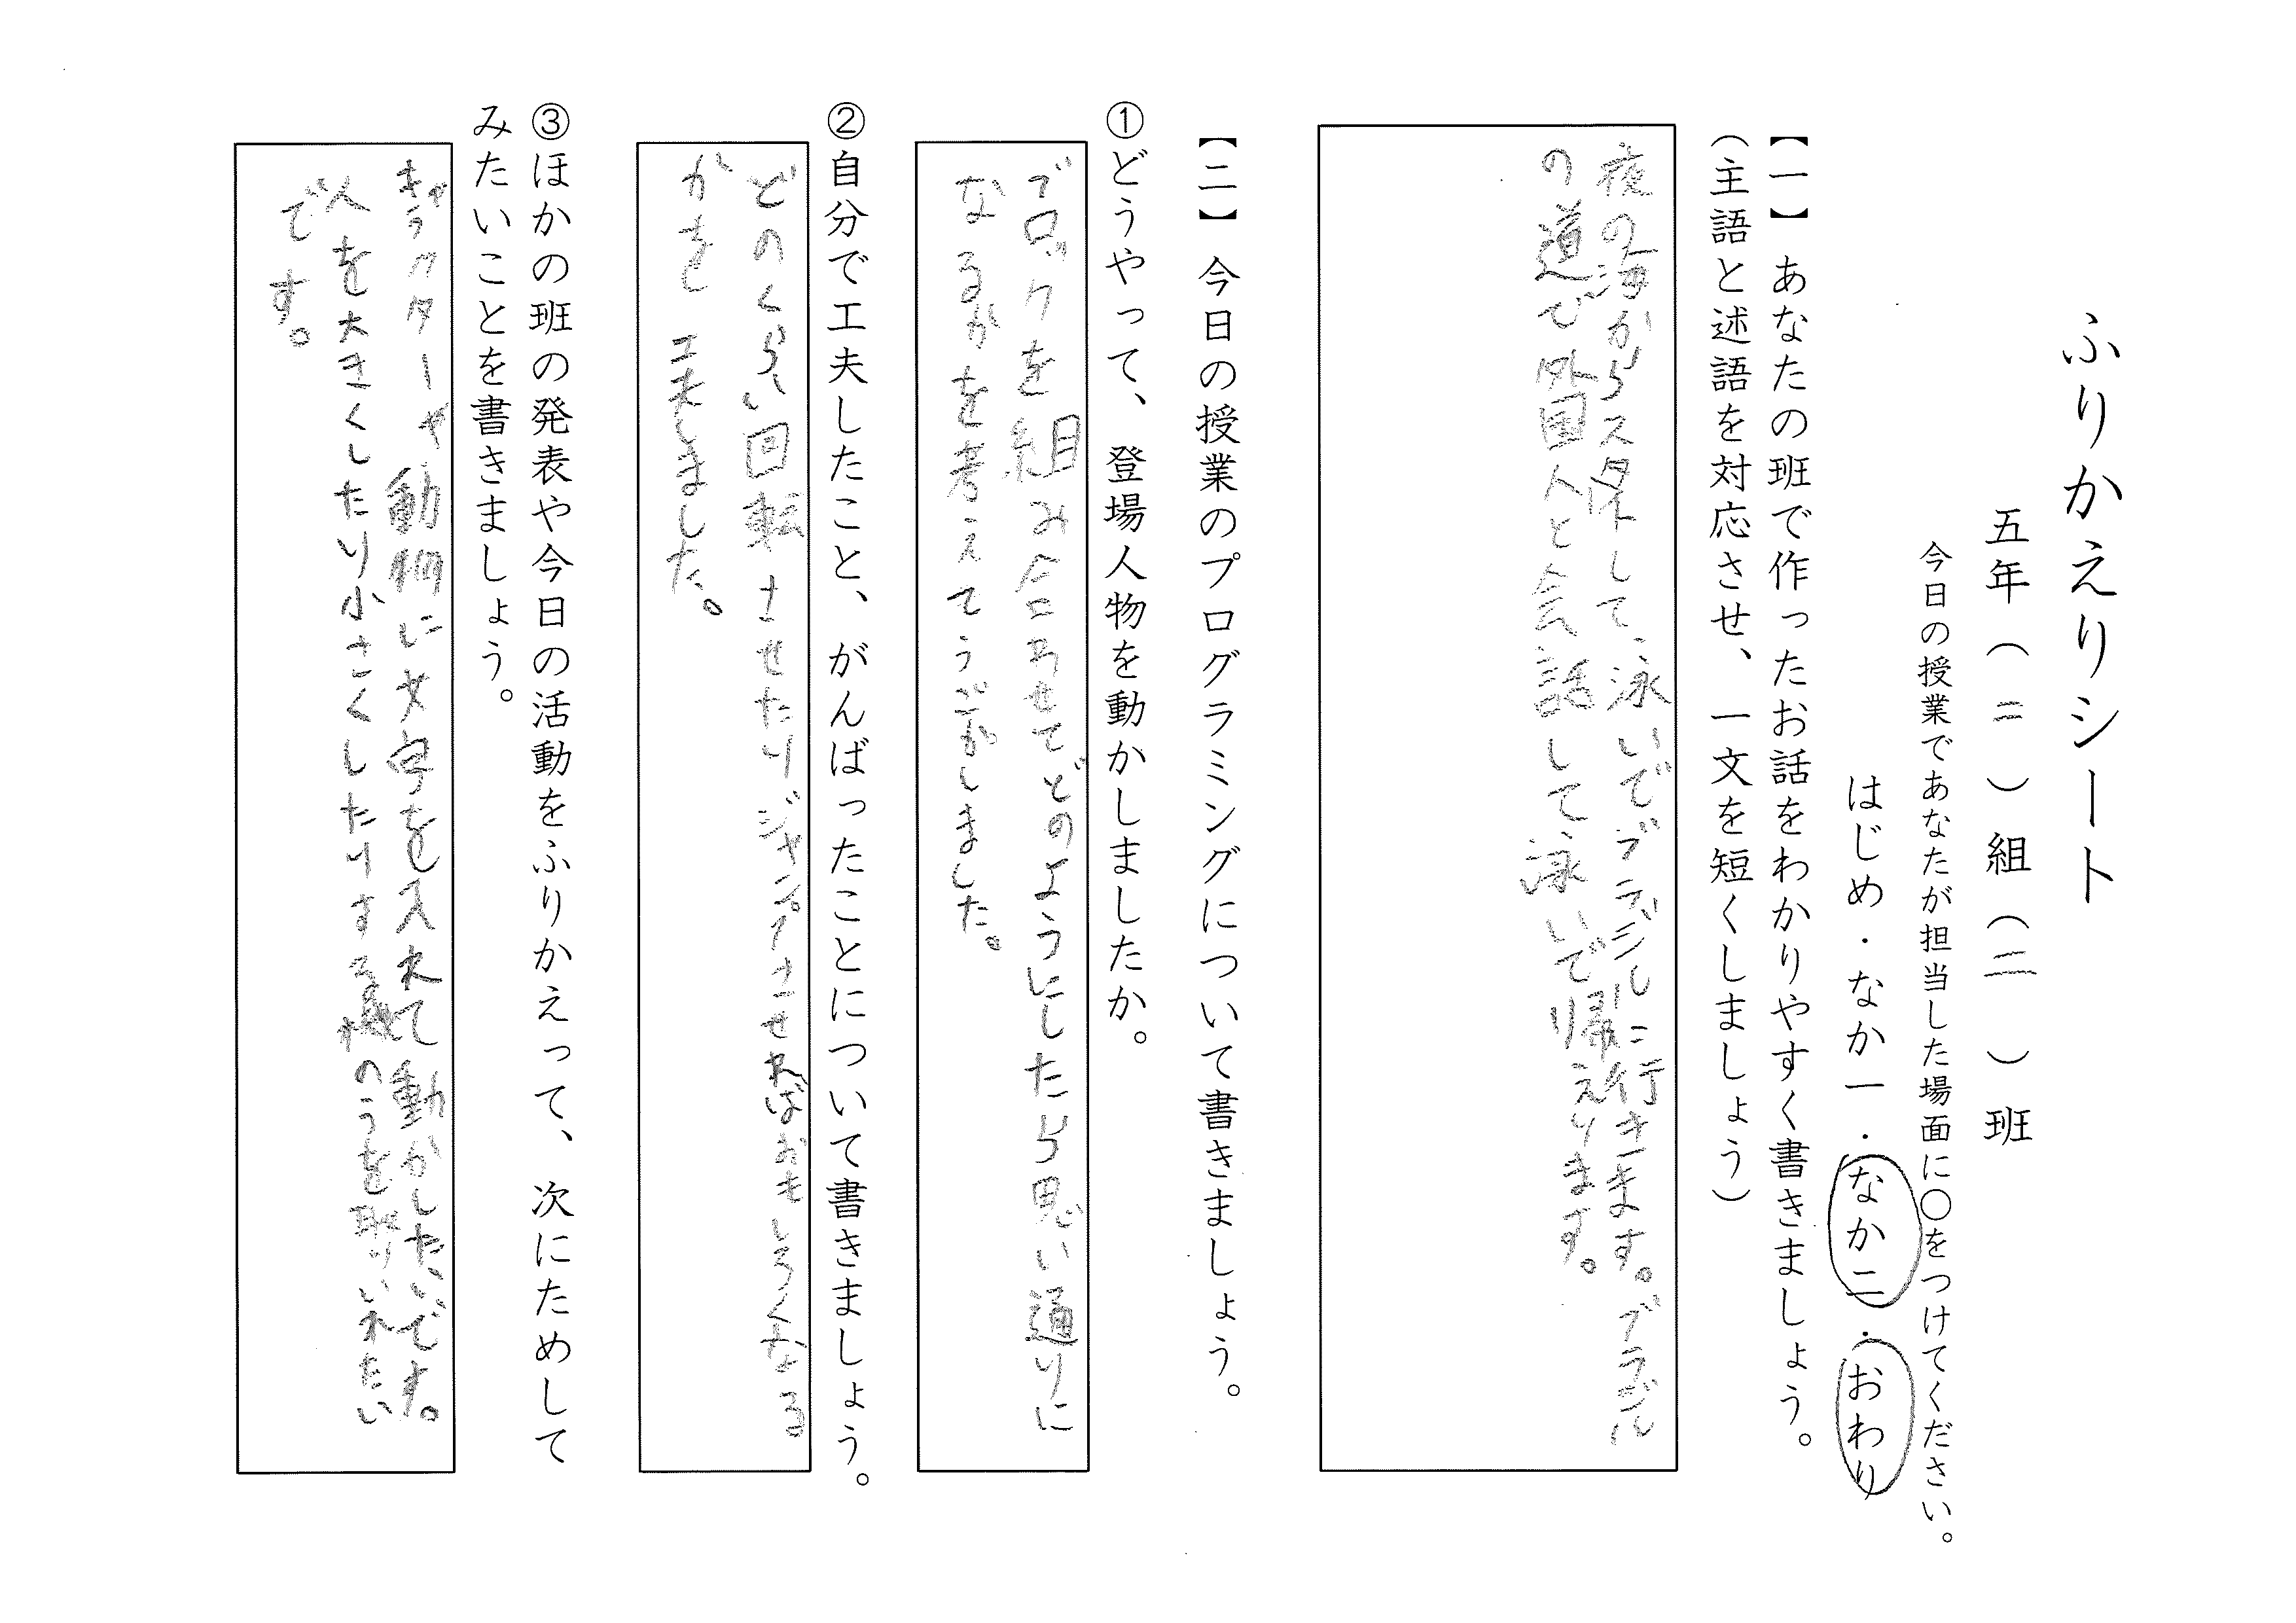 ふりかえりシート
五年(二)組(二)班
今日の授業であなたが担当した場面に○をつけてください。
はじめ・なか一・なか二・おわり
【一】あなたの班で作ったお話をわかりやすく書きましょう。
(主語と述語を対応させ、一文を短くしましょう)
夜の海からスタートして、泳いでブラジルに行きます。ブラジル
の道で外国人と会話して泳いで帰えります。
【二】今日の授業のプログラミングについて書きましょう。
①どうやって、登場人物を動かしましたか。
ブロックを組み合わせてどのようにしたら思い通りに
なるかを考えてうごかしました。
②自分で工夫したこと、がんばったことについて書きましょう。
どのくらい回転させたりジャンプさせればおもしろくなる
かを工夫しました。
③ほかの班の発表や今日の活動をふりかえって、次にためして
みたいことを書きましょう。
キャラクターや動物に文字を入れて動かしたいです。
人を大きくしたり小さくしたりする機のうを取りいれたい
です。